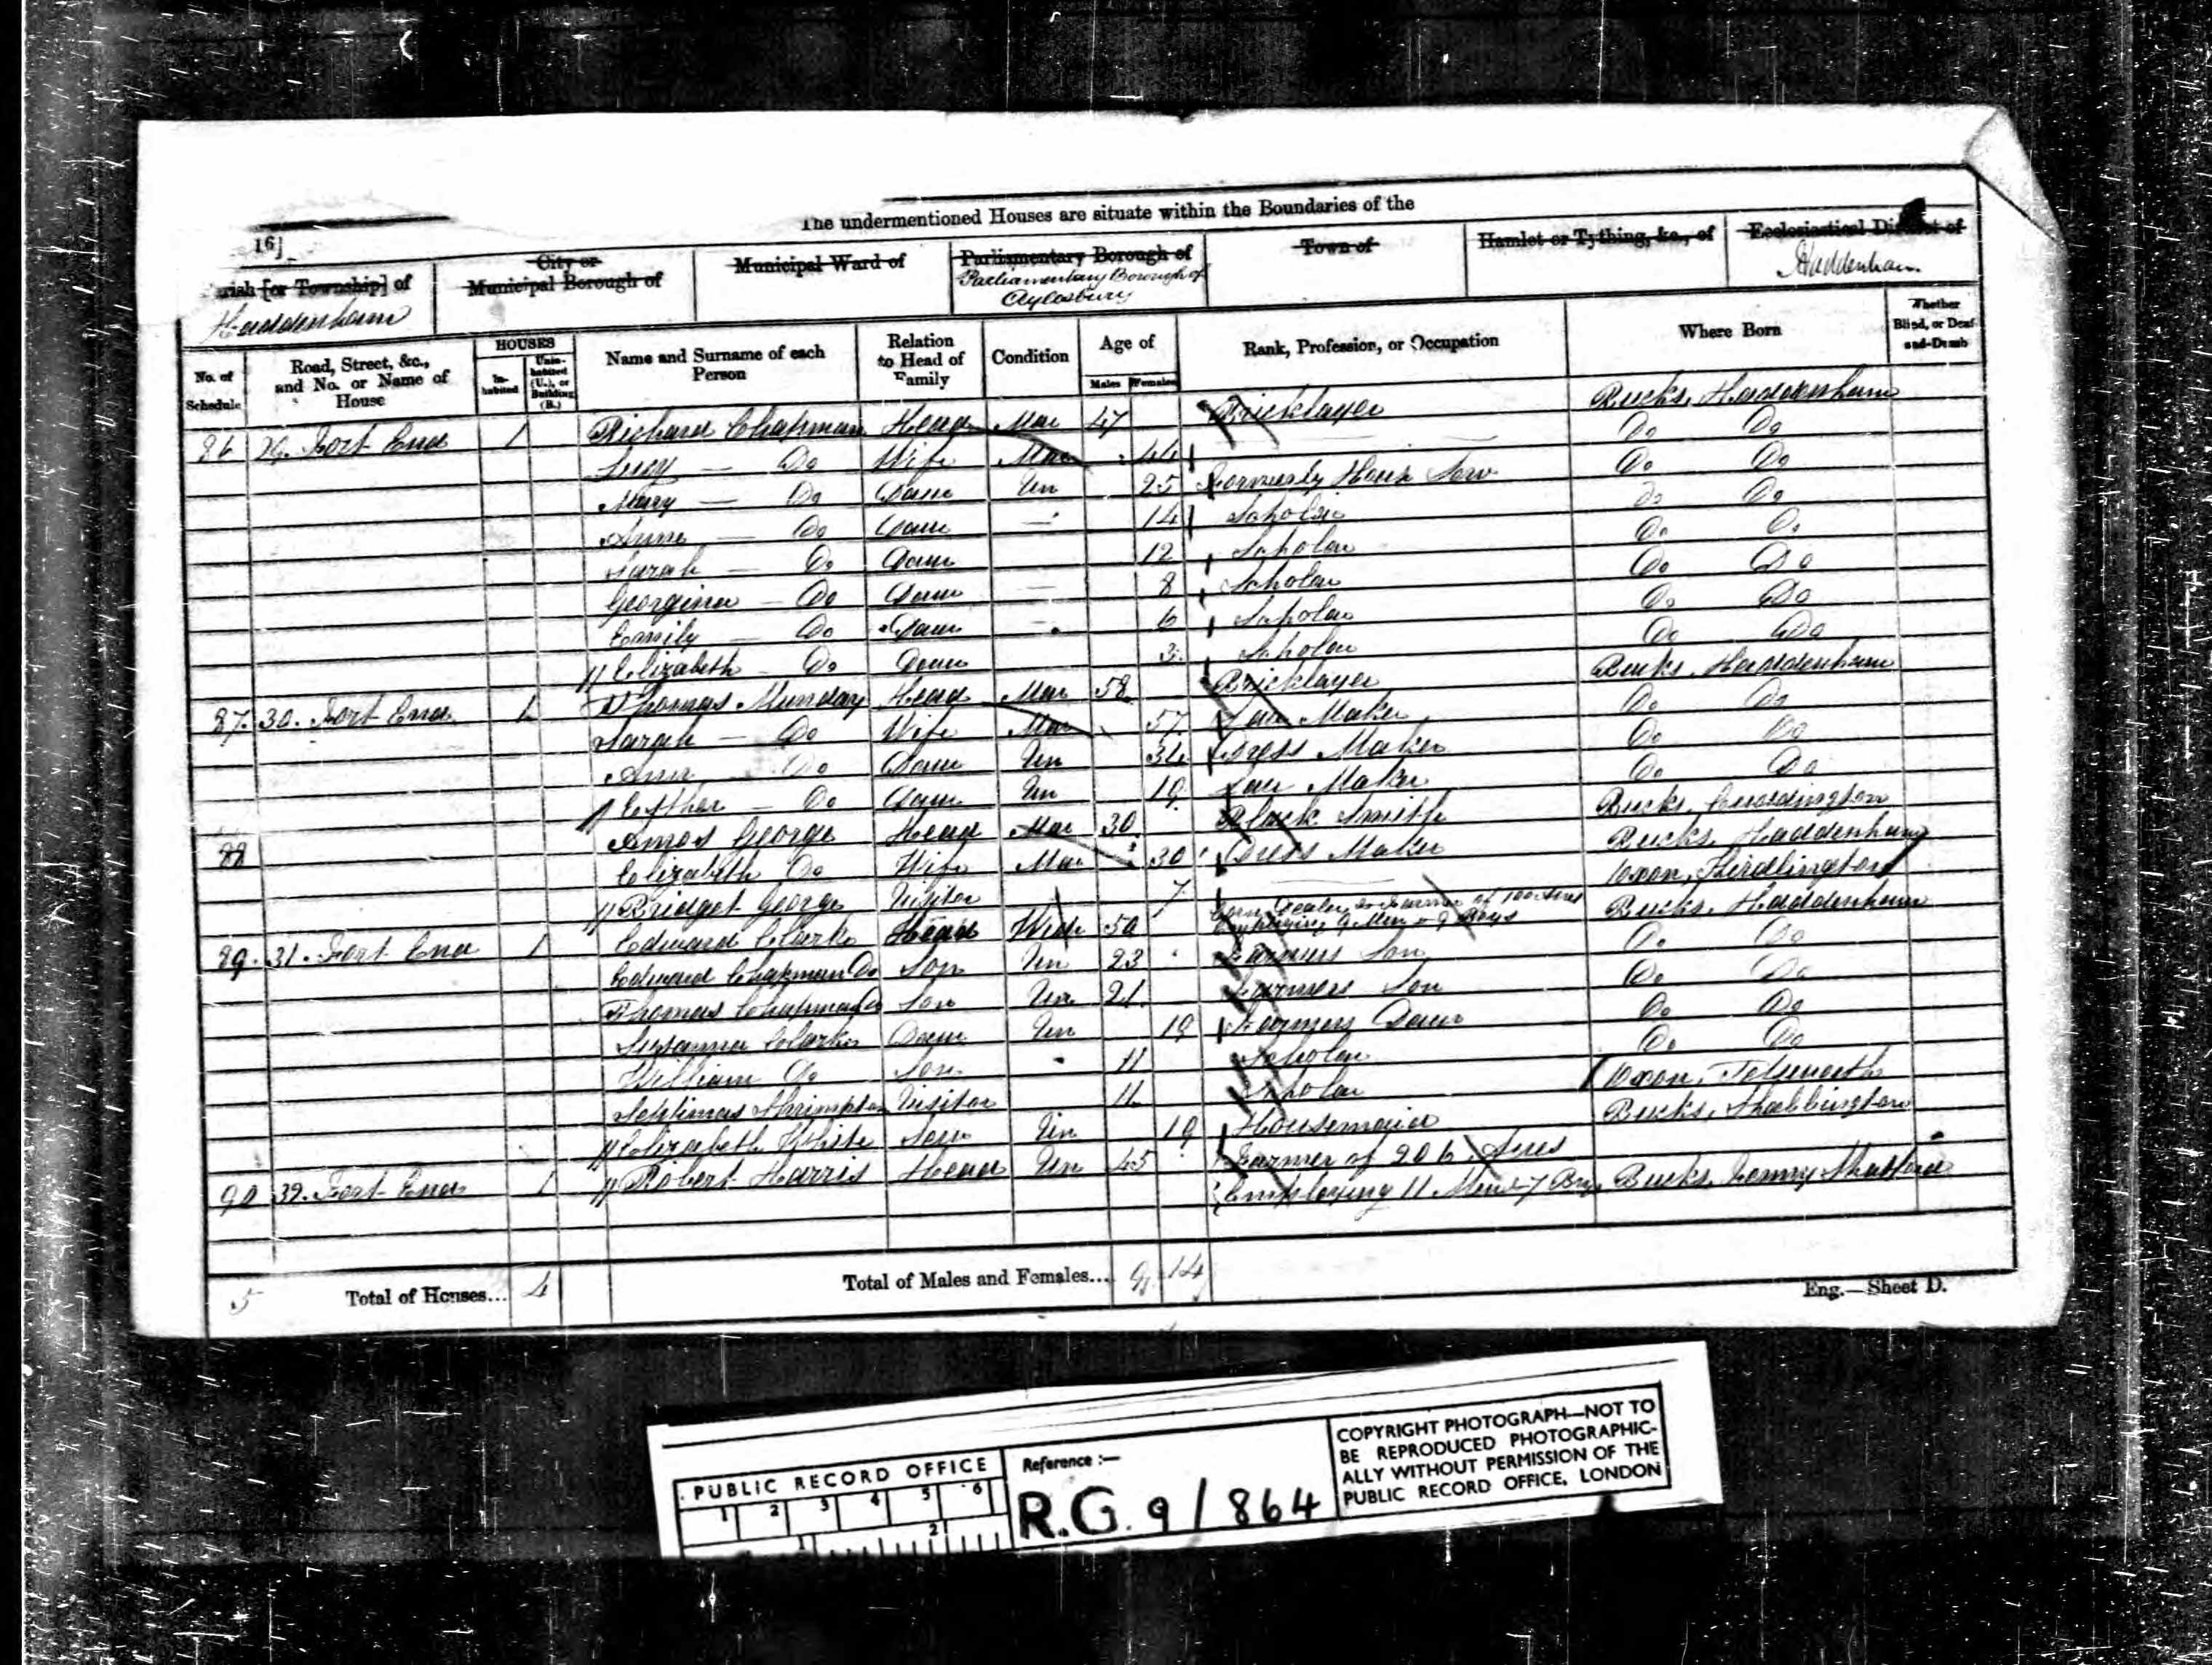 The undermentioned Houses are situate within the Boundaries of the
16]
arish [or Township] of
Haddenham
City or
Municipal Borough of
Municipal Ward of
Parliamentary Borough of
Parliamentary Borough of
Aylesbury
Town of
Hamlet or Tything, &c., of
Ecclesiastical District of
Haddenham
No. of Schedule
Road, Street, &c., and No. or Name of House
HOUSES
In-habited
Unin-habited (U.), or Building (B.)
Name and Surname of each Person
Relation to Head of Family
Condition
Age of
Males Females
Rank, Profession, or Occupation
Where Born
Whether Blind, or Deaf-and-Dumb
86 Fort End 1 Richard Chapman Head Mar 47 Bricklayer Bucks, Haddenham
Lucy — Do Wife Mar 44 Do Do
Mary — Do Daur Un 25 Formerly House Serv Do Do
Anne — Do Daur — 14 Scholar Do Do
Sarah — Do Daur 12 Scholar Do Do
Georgina — Do Daur — 8 Scholar Do Do
Emily — Do Daur — 6 Scholar Do Do
Elizabeth — Do Daur 3 Scholar Do Do
87. 30. Fort End 1 Thomas Munday Head Mar 58 Bricklayer Bucks, Haddenham
Sarah — Do Wife Mar 57 Lace Maker Do Do
Ann — Do Daur Un Dress Maker Do Do
Esther — Do Daur Un 19 Lace Maker Do Do
88 Amos George Head Mar 30 Black Smith Bucks, Cuddington
Elizabeth Do Wife Mar 30 Dress Maker Bucks, Haddenham
Bridget George Visitor 7 Oxon, Kirdlington
89. 31. Fort End 1 Edward Clarke Head Wid 50 Corn Dealer & Farmer of 100 Acres Bucks, Haddenham
Employing Men & Boys
Edward Chapman Do Son Un 23 Farmers Son Do Do
Thomas Chapman Do Son Un 21 Farmers Son Do Do
Susanna Clarke Daur Un 19 Farmers Daur Do Do
William Do Son 11 Scholar Do Do
Septimas Shrimpton Visitor 11 Scholar Oxon, Tetsworth
Elizabeth White Serv Un 19 Housemaid Bucks, Shabbington
90 Fort End 1 Robert Harris Head Un 45 Farmer of 206 Acres
Employing 11 Men & 7 Boys Bucks
5 Total of Houses... 4 Total of Males and Females... 9 14
Eng.—Sheet D.
PUBLIC RECORD OFFICE
1 2 3 4 5 6
1 2
Reference :—
R.G. 9/864
COPYRIGHT PHOTOGRAPH—NOT TO
BE REPRODUCED PHOTOGRAPHIC-
ALLY WITHOUT PERMISSION OF THE
PUBLIC RECORD OFFICE, LONDON